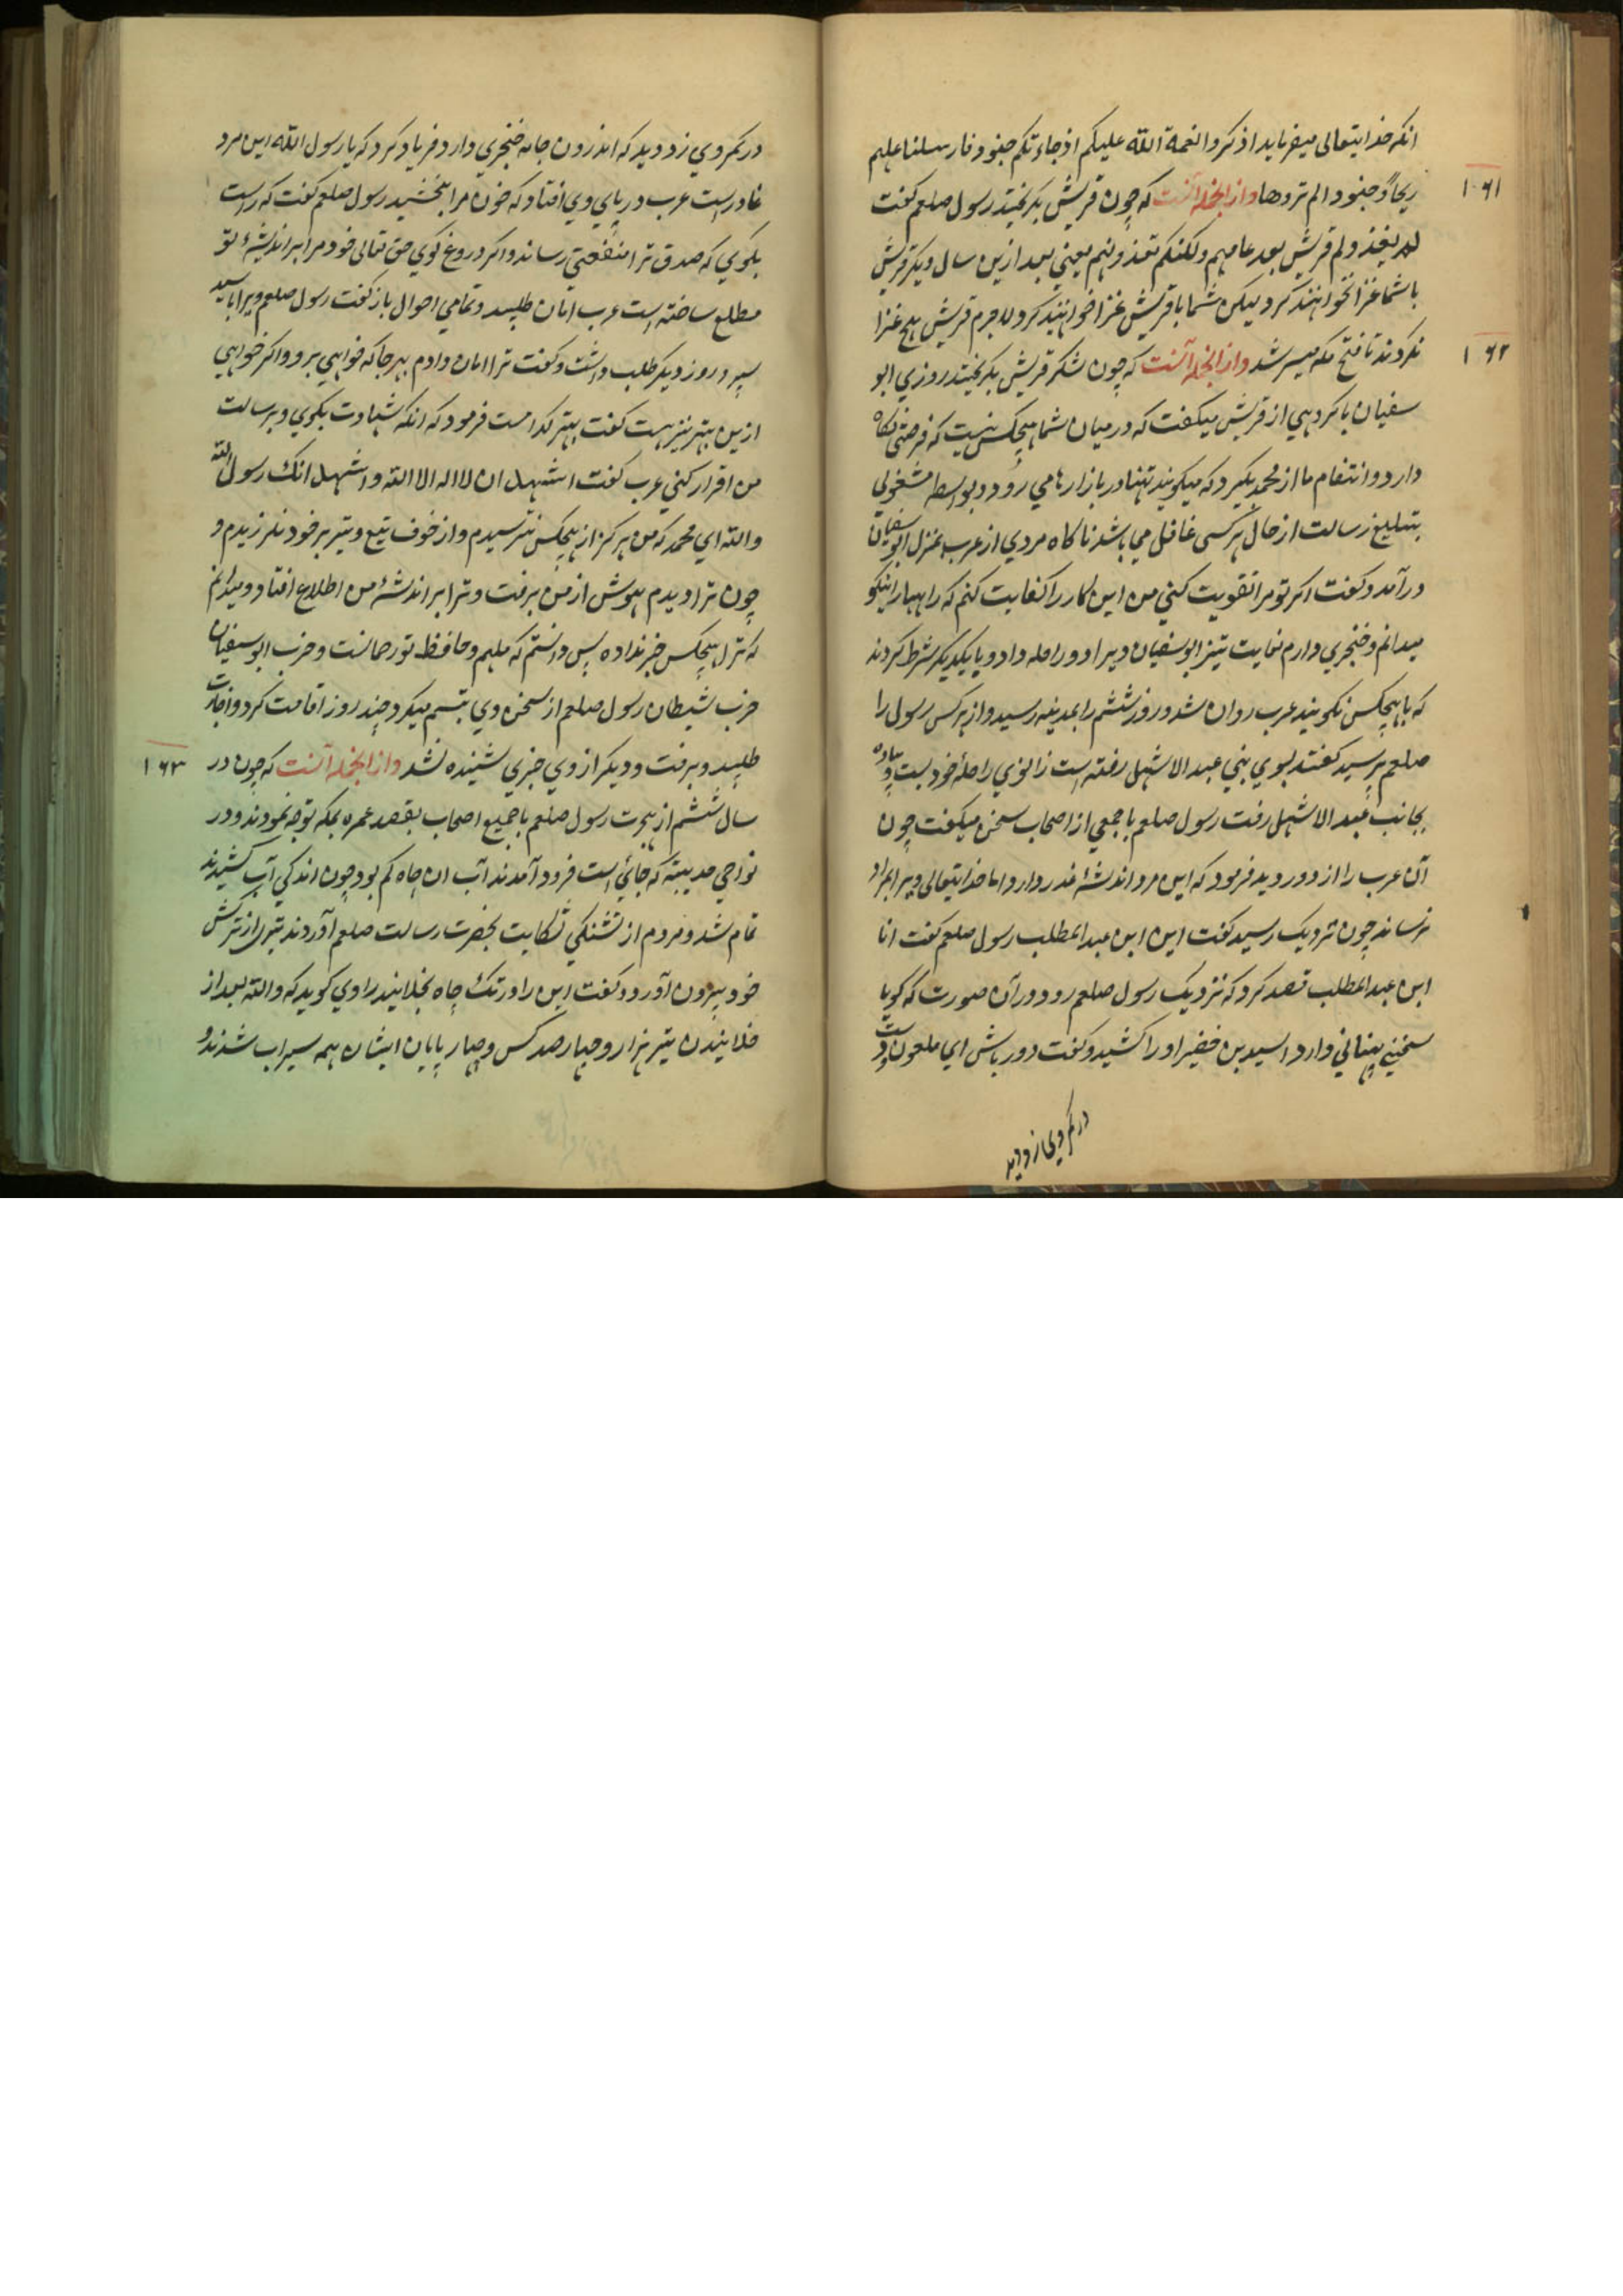 انکه خدایتعالی میفرماید اذکروا نعمة الله علیکم اذ جاءتکم جنود فارسلنا علیهم
۱۶۱
ریحاً و جنودا لم تروها و از انجمله آنست که چون قریش بکریختند رسول صلعم کفت
لن یغذو لم قریش بعد عامهم ولکنکم تغذونهم یعنی بعد ازین سال دیکر قریش
با شما غزا نخواهند کرد لیکن شما با قریش غزا خواهید کرد لاجرم قریش هیچ غزا
۱۶۲
نکردند تا فتح مکه میسر شد و از انجمله آنست که چون لشکر قریش بکریختند روزی ابو
سفیان با کروهی از قریش میکفت که در میان شما هیچکس نیست که فرصتی نکاه
دارد و انتقام ما از محمد بکیرد که میکویند تنها در بازارها می رود و بواسطه مشغولی
بتبلیغ رسالت از حال هر کسی غافل می باشد ناکاه مردی از عرب بمنزل ابوسفیان
درآمد و کفت اکر تو مرا تقویت کنی من این کار را کفایت کنم که راهها را نیکو
میدانم و خنجری دارم نهایت تیز ابوسفیان ویرا دو راحله داد و با یکدیکر شرط کردند
که با هیچکس نکویند عرب روان شد و روز ششم را بمدینه رسید و از هر کس رسول را
صلعم پرسید کفتند بسوی بنی عبد الاشهل رفته است زانوی راحلهٔ خود ببست و پیاده
بجانب عبد الاشهل رفت رسول صلعم با جمعی از اصحاب سخن میکفت چون
آن عرب را از دور دید فرمود که این مرد اندیشهٔ غدر دارد اما خدایتعالی ویرا بمراد
نرساند چون نزدیک رسید کفت این ابن عبد المطلب رسول صلعم کفت انا
ابن عبد المطلب قصد کرد که نزدیک رسول صلعم رود در آن صورت که کویا
سخنی پنهانی دارد اسید بن خضیر او را کشید و کفت دور باش ای ملعون و دست
در کمر وی زد دید
در کمر وی زد دید که اندرون جامه خنجری دارد فریاد کرد که یا رسول الله این مرد
غادر است عرب در پای وی افتاد که خون مرا ببخشید رسول صلعم کفت که راست
بکوی که صدق ترا منفعتی رساند و اکر دروغ کوی حق تعالی خود مرا بر اندیشهٔ تو
مطلع ساخته است عرب امان طلبید و تمامی احوال باز کفت رسول صلعم ویرا باسید
سپرد روز دیکر طلب داشت و کفت ترا امان دادم بهر جا که خواهی برو و اکر خواهی
ازین بهتر نیز هست کفت بهتر کدامست فرمود که انکه شهادت بکوی و برسالت
من اقرار کنی عرب کفت اشهد ان لا اله الا الله و اشهد انک رسول الله
والله ای محمد که من هرکز از هیچکس نترسیدم و از خوف تیغ و تیر بر خود نلرزیدم و
چون ترا دیدم هوش از من برفت و ترا بر اندیشهٔ من اطلاع افتاد و میدانم
که ترا هیچکس خبر نداده پس دانستم که ملهم و حافظ تو رحمانست و حزب ابوسفیان
حزب شیطان رسول صلعم از سخن وی تبسم میکرد چند روز اقامت کرد و اجازت
طلبید و برفت و دیکر از وی خبری شنیده نشد و از انجمله آنست که چون در
۱۶۳
سال ششم از هجرت رسول صلعم با جمیع اصحاب بقصد عمره بمکه توجه نمودند و در
نواحی حدیبیه که جائی است فرود آمدند آب ان چاه کم بود چون اندکی آب کشیدند
تمام شد و مردم از تشنکی شکایت بحضرت رسالت صلعم آوردند تیری از ترکش
خود بیرون آورد و کفت این را در تک چاه بخلانید راوی کوید که والله بعد از
خلانیدن تیر هزار و چهار صد کس و چهار پایان ایشان همه سیراب شدند و